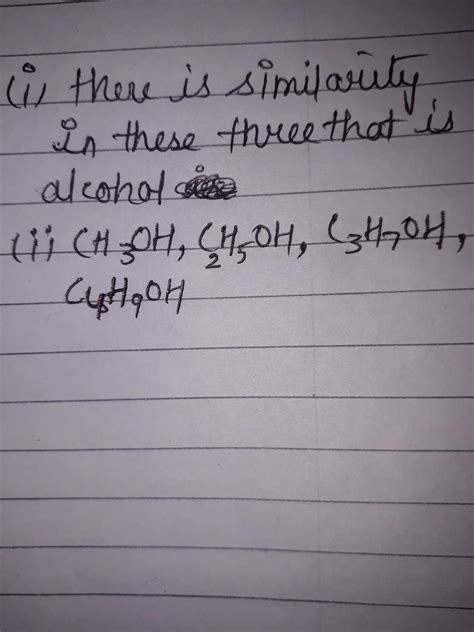 (i) there is similarity
in these three that is
alcohol
(ii) CH₃OH, C₂H₅OH, C₃H₇OH,
C₄H₉OH